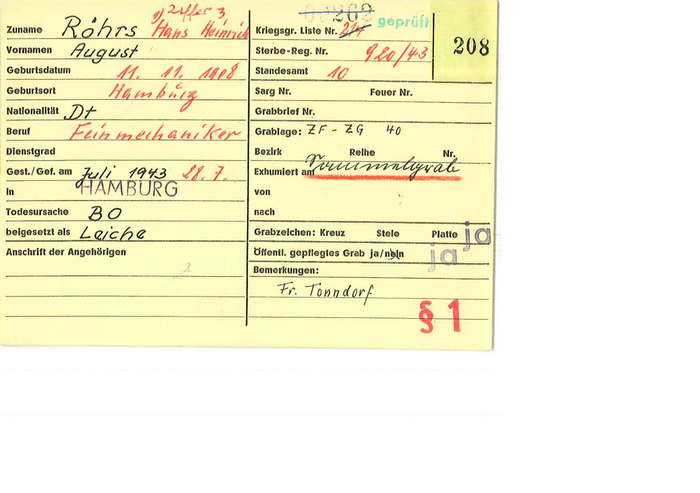 Ziffer 3
Zuname Röhrs Hans Heinrich
Vornamen August
Geburtsdatum 11. 11. 1908
Geburtsort Hamburg
Nationalität Dt
Beruf Feinmechaniker
Dienstgrad
Gest./Gef. am Juli 1943 28.7.
in HAMBURG
Todesursache BO
beigesetzt als Leiche
Anschrift der Angehörigen
269 geprüft
Kriegsgr. Liste Nr.
208
Sterbe-Reg. Nr. 920/43
Standesamt 10
Sarg Nr. Feuer Nr.
Grabbrief Nr.
Grablage: ZF - ZG 40
Bezirk Reihe Nr.
Exhumiert am Sammelgrab
von
nach
Grabzeichen: Kreuz Stele Platte ja
Öffentl. gepflegtes Grab ja/nein ja
Bemerkungen:
Fr. Tonndorf
§ 1